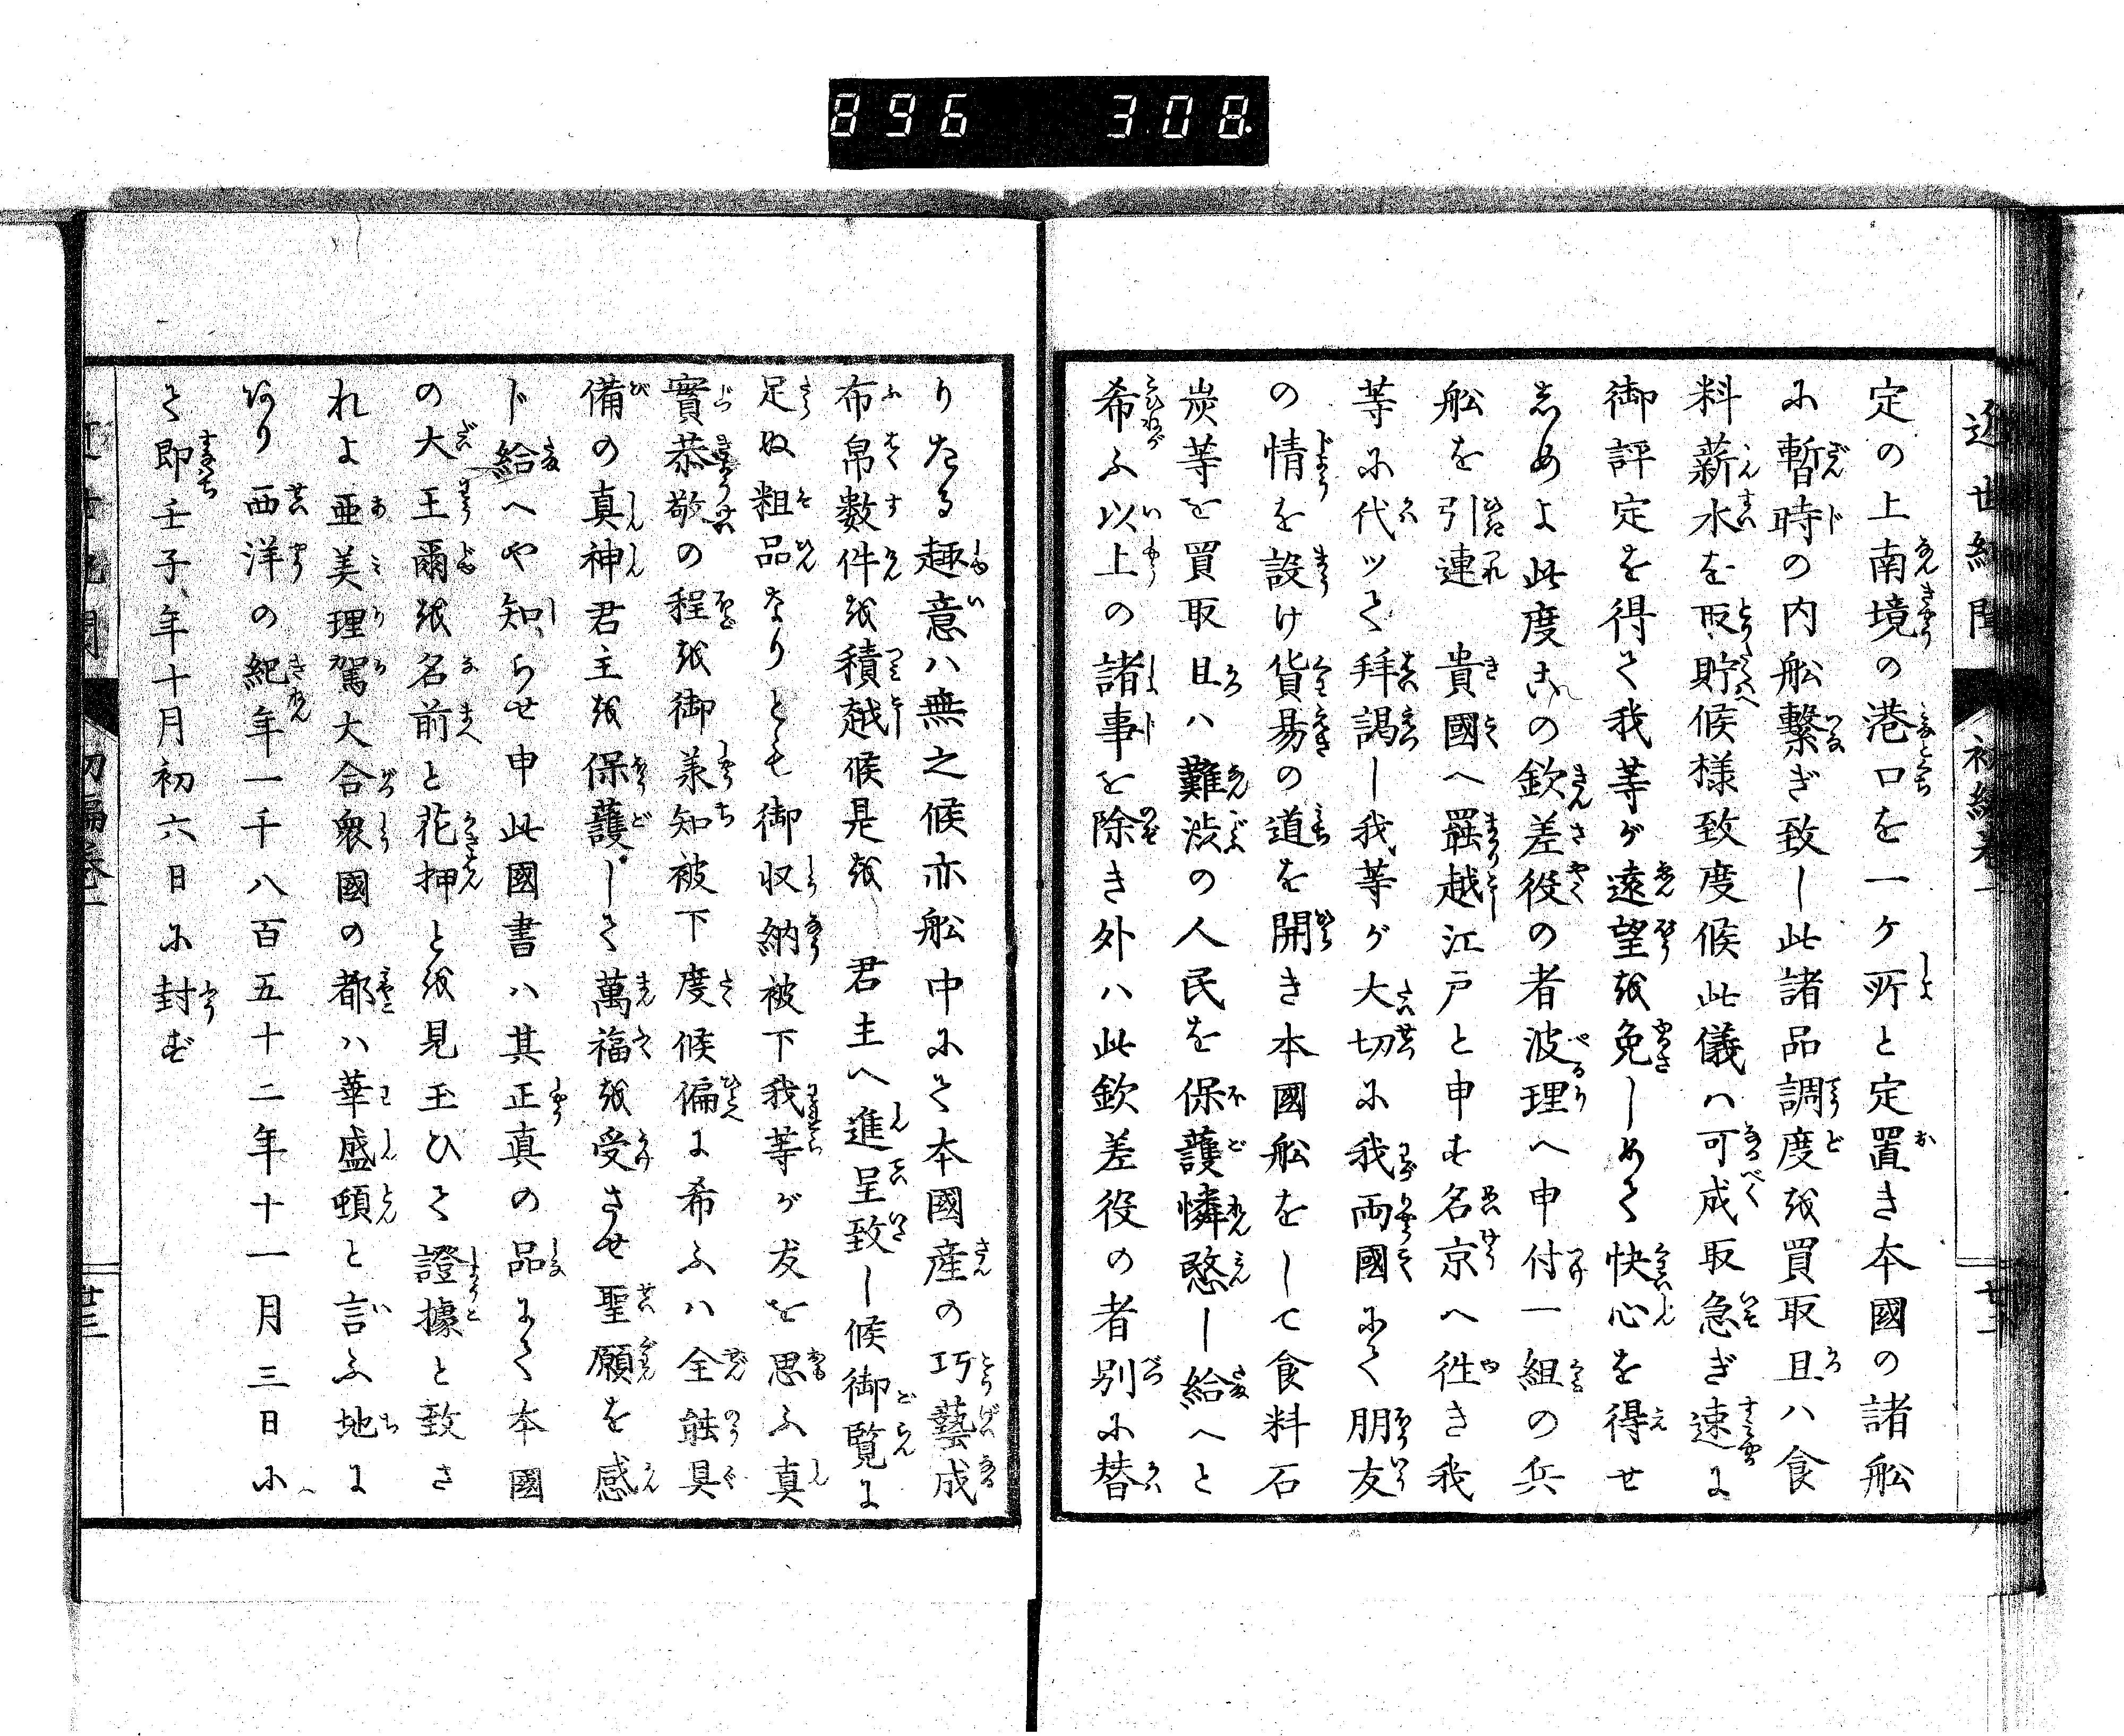 896 308
近世紀聞 初編巻一 廿二
定の上南境の港口を一ケ所と定置き本國の諸舩
に暫時の内舩繋ぎ致し此諸品調度を買取且ハ食
料薪水を取貯候様致度候此儀ハ可成取急ぎ速に
御評定を得て我等が遠望を免しめて快心を得せ
しめよ此度この欽差役の者波理へ申付一組の兵
舩を引連 貴國へ罷越江戸と申す名京へ徃き我
等に代ツて拜謁し我等が大切に我両國にて朋友
の情を設け貨易の道を開き本國舩をして食料石
炭等を買取且ハ難渋の人民を保護憐愍し給へと
希ふ以上の諸事を除き外ハ此欽差役の者別に替
りたる趣意ハ無之候亦舩中にて本國産の巧藝成
布帛数件を積越候是を 君主へ進呈致し候御覧に
足ぬ粗品なりとも御収納被下我等が友を思ふ真
實恭敬の程を御承知被下度候偏に希ふハ全能具
備の真神君主を保護して萬福を受させ聖願を感
じ給へや知らせ申此國書ハ其正真の品にて本國
の大王爾を名前と花押とを見玉ひて證據と致さ
れよ亜美理駕大合衆國の都ハ華盛頓と言ふ地に
あり西洋の紀年一千八百五十二年十一月三日に
て即壬子年十月初六日に封ず
初編巻一 廿三